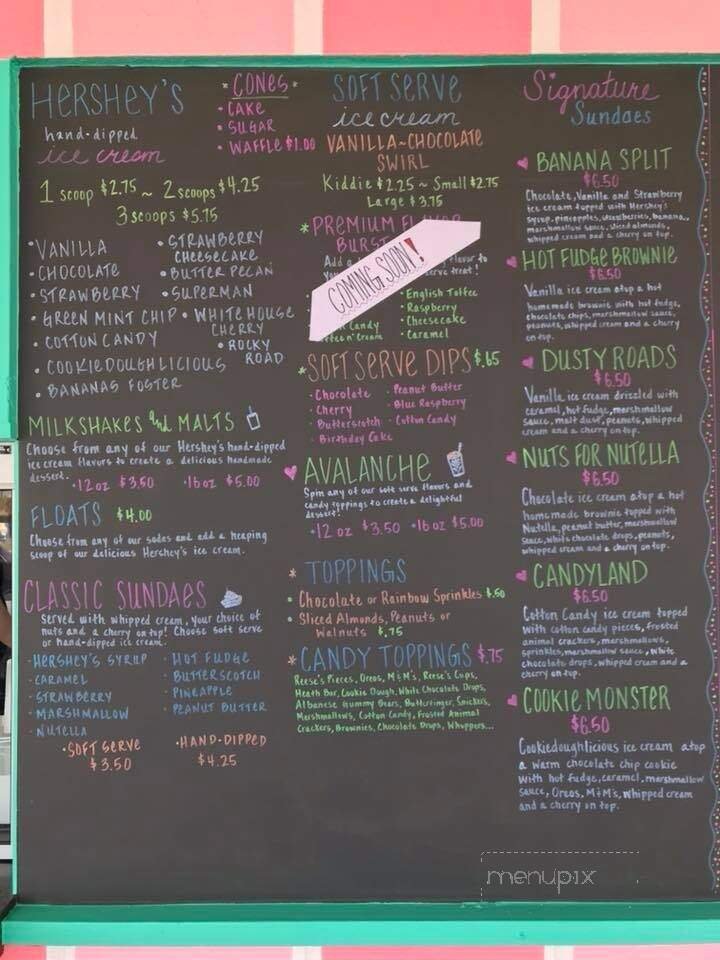 HERSHEY'S
hand-dipped
ice cream
1 scoop $2.75 ~ 2 scoops $4.25
3 scoops $5.75
• VANILLA
• CHOCOLATE
• STRAWBERRY
• GREEN MINT CHIP
• COTTON CANDY
• COOKIEDOUGHLICIOUS
• BANANAS FOSTER
• STRAWBERRY
CHEESECAKE
• BUTTER PECAN
• SUPERMAN
• WHITE HOUSE
CHERRY
• ROCKY
ROAD
• CONES •
• CAKE
• SUGAR
• WAFFLE $1.00
MILKSHAKES and MALTS
Choose from any of our Hershey's hand-dipped
ice cream flavors to create a delicious handmade
dessert.
• 12 oz $3.50 • 16 oz $5.00
FLOATS $4.00
Choose from any of our sodas and add a heaping
scoop of our delicious Hershey's ice cream.
CLASSIC SUNDAES
Served with whipped cream, your choice of
nuts and a cherry on top! Choose soft serve
or hand-dipped ice cream.
• HERSHEY'S SYRUP
• CARAMEL
• STRAWBERRY
• MARSHMALLOW
• NUTELLA
• HOT FUDGE
• BUTTERSCOTCH
• PINEAPPLE
• PEANUT BUTTER
• SOFT SERVE
$3.50
• HAND-DIPPED
$4.25
SOFT SERVE
ice cream
VANILLA~CHOCOLATE
SWIRL
Kiddie $2.25 ~ Small $2.75
Large $3.75
* PREMIUM
BURST
Add a flavor to
serve treat!
COMING SOON!
Candy
• English Toffee
• Raspberry
• Cheesecake
• Caramel
* SOFT SERVE DIPS $.65
• Chocolate
• Cherry
• Butterscotch
• Birthday Cake
• Peanut Butter
• Blue Raspberry
• Cotton Candy
AVALANCHE
Spin any of our soft serve flavors and
candy toppings to create a delightful
dessert!
• 12 oz $3.50 • 16 oz $5.00
* TOPPINGS
• Chocolate or Rainbow Sprinkles $.50
• Sliced Almonds, Peanuts or
Walnuts $.75
* CANDY TOPPINGS $.75
Reese's Pieces, Oreos, M&M's, Reese's Cups,
Heath Bar, Cookie Dough, White Chocolate Drops,
Albanese Gummy Bears, Butterfinger, Snickers,
Marshmallows, Cotton Candy, Frosted Animal
Crackers, Brownies, Chocolate Drops, Whoppers...
Signature
Sundaes
BANANA SPLIT
$6.50
Chocolate, Vanilla and Strawberry
ice cream topped with Hershey's
syrup, pineapples, strawberries, banana,
marshmallow sauce, sliced almonds,
whipped cream and a cherry on top.
HOT FUDGE BROWNIE
$6.50
Vanilla ice cream atop a hot
homemade brownie with hot fudge,
chocolate chips, marshmallow sauce,
peanuts, whipped cream and a cherry
on top.
DUSTY ROADS
$6.50
Vanilla ice cream drizzled with
caramel, hot fudge, marshmallow
sauce, malt dust, peanuts, whipped
cream and a cherry on top.
NUTS FOR NUTELLA
$6.50
Chocolate ice cream atop a hot
homemade brownie topped with
Nutella, peanut butter, marshmallow
sauce, white chocolate drops, peanuts,
whipped cream and a cherry on top.
CANDYLAND
$6.50
Cotton Candy ice cream topped
with cotton candy pieces, frosted
animal crackers, marshmallows,
sprinkles, marshmallow sauce, white
chocolate drops, whipped cream and a
cherry on top.
COOKIE MONSTER
$6.50
Cookiedoughlicious ice cream atop
a warm chocolate chip cookie
with hot fudge, caramel, marshmallow
sauce, Oreos, M&M's, whipped cream
and a cherry on top.
menupix